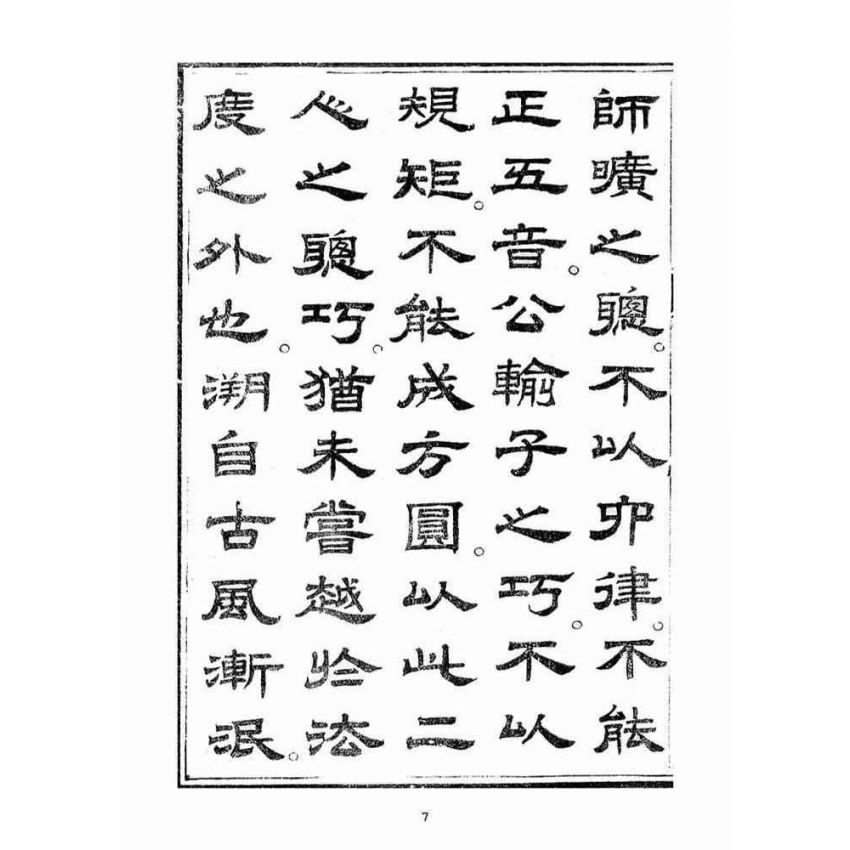 師曠之聰。不以卯律。不能
正五音。公輸子之巧。不以
規矩。不能成方圓。以此二
心之聰巧。猶未嘗越於法
度之外也。溯自古風漸泯。
7